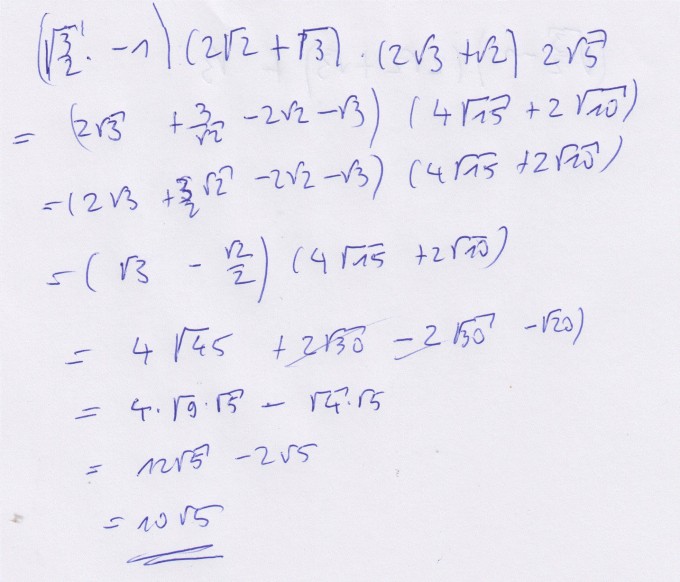 (√(3/2) · -1) (2√2 + √3) · (2√3 + √2) · 2√5
= (2√3 + 3/√2 - 2√2 - √3) (4√15 + 2√10)
= (2√3 + 3/2 √2 - 2√2 - √3) (4√15 + 2√10)
= (√3 - √2/2) (4√15 + 2√10)
= 4√45 + 2√30 - 2√30 - √20)
= 4·√9·√5 - √4·√5
= 12√5 - 2√5
= 10√5